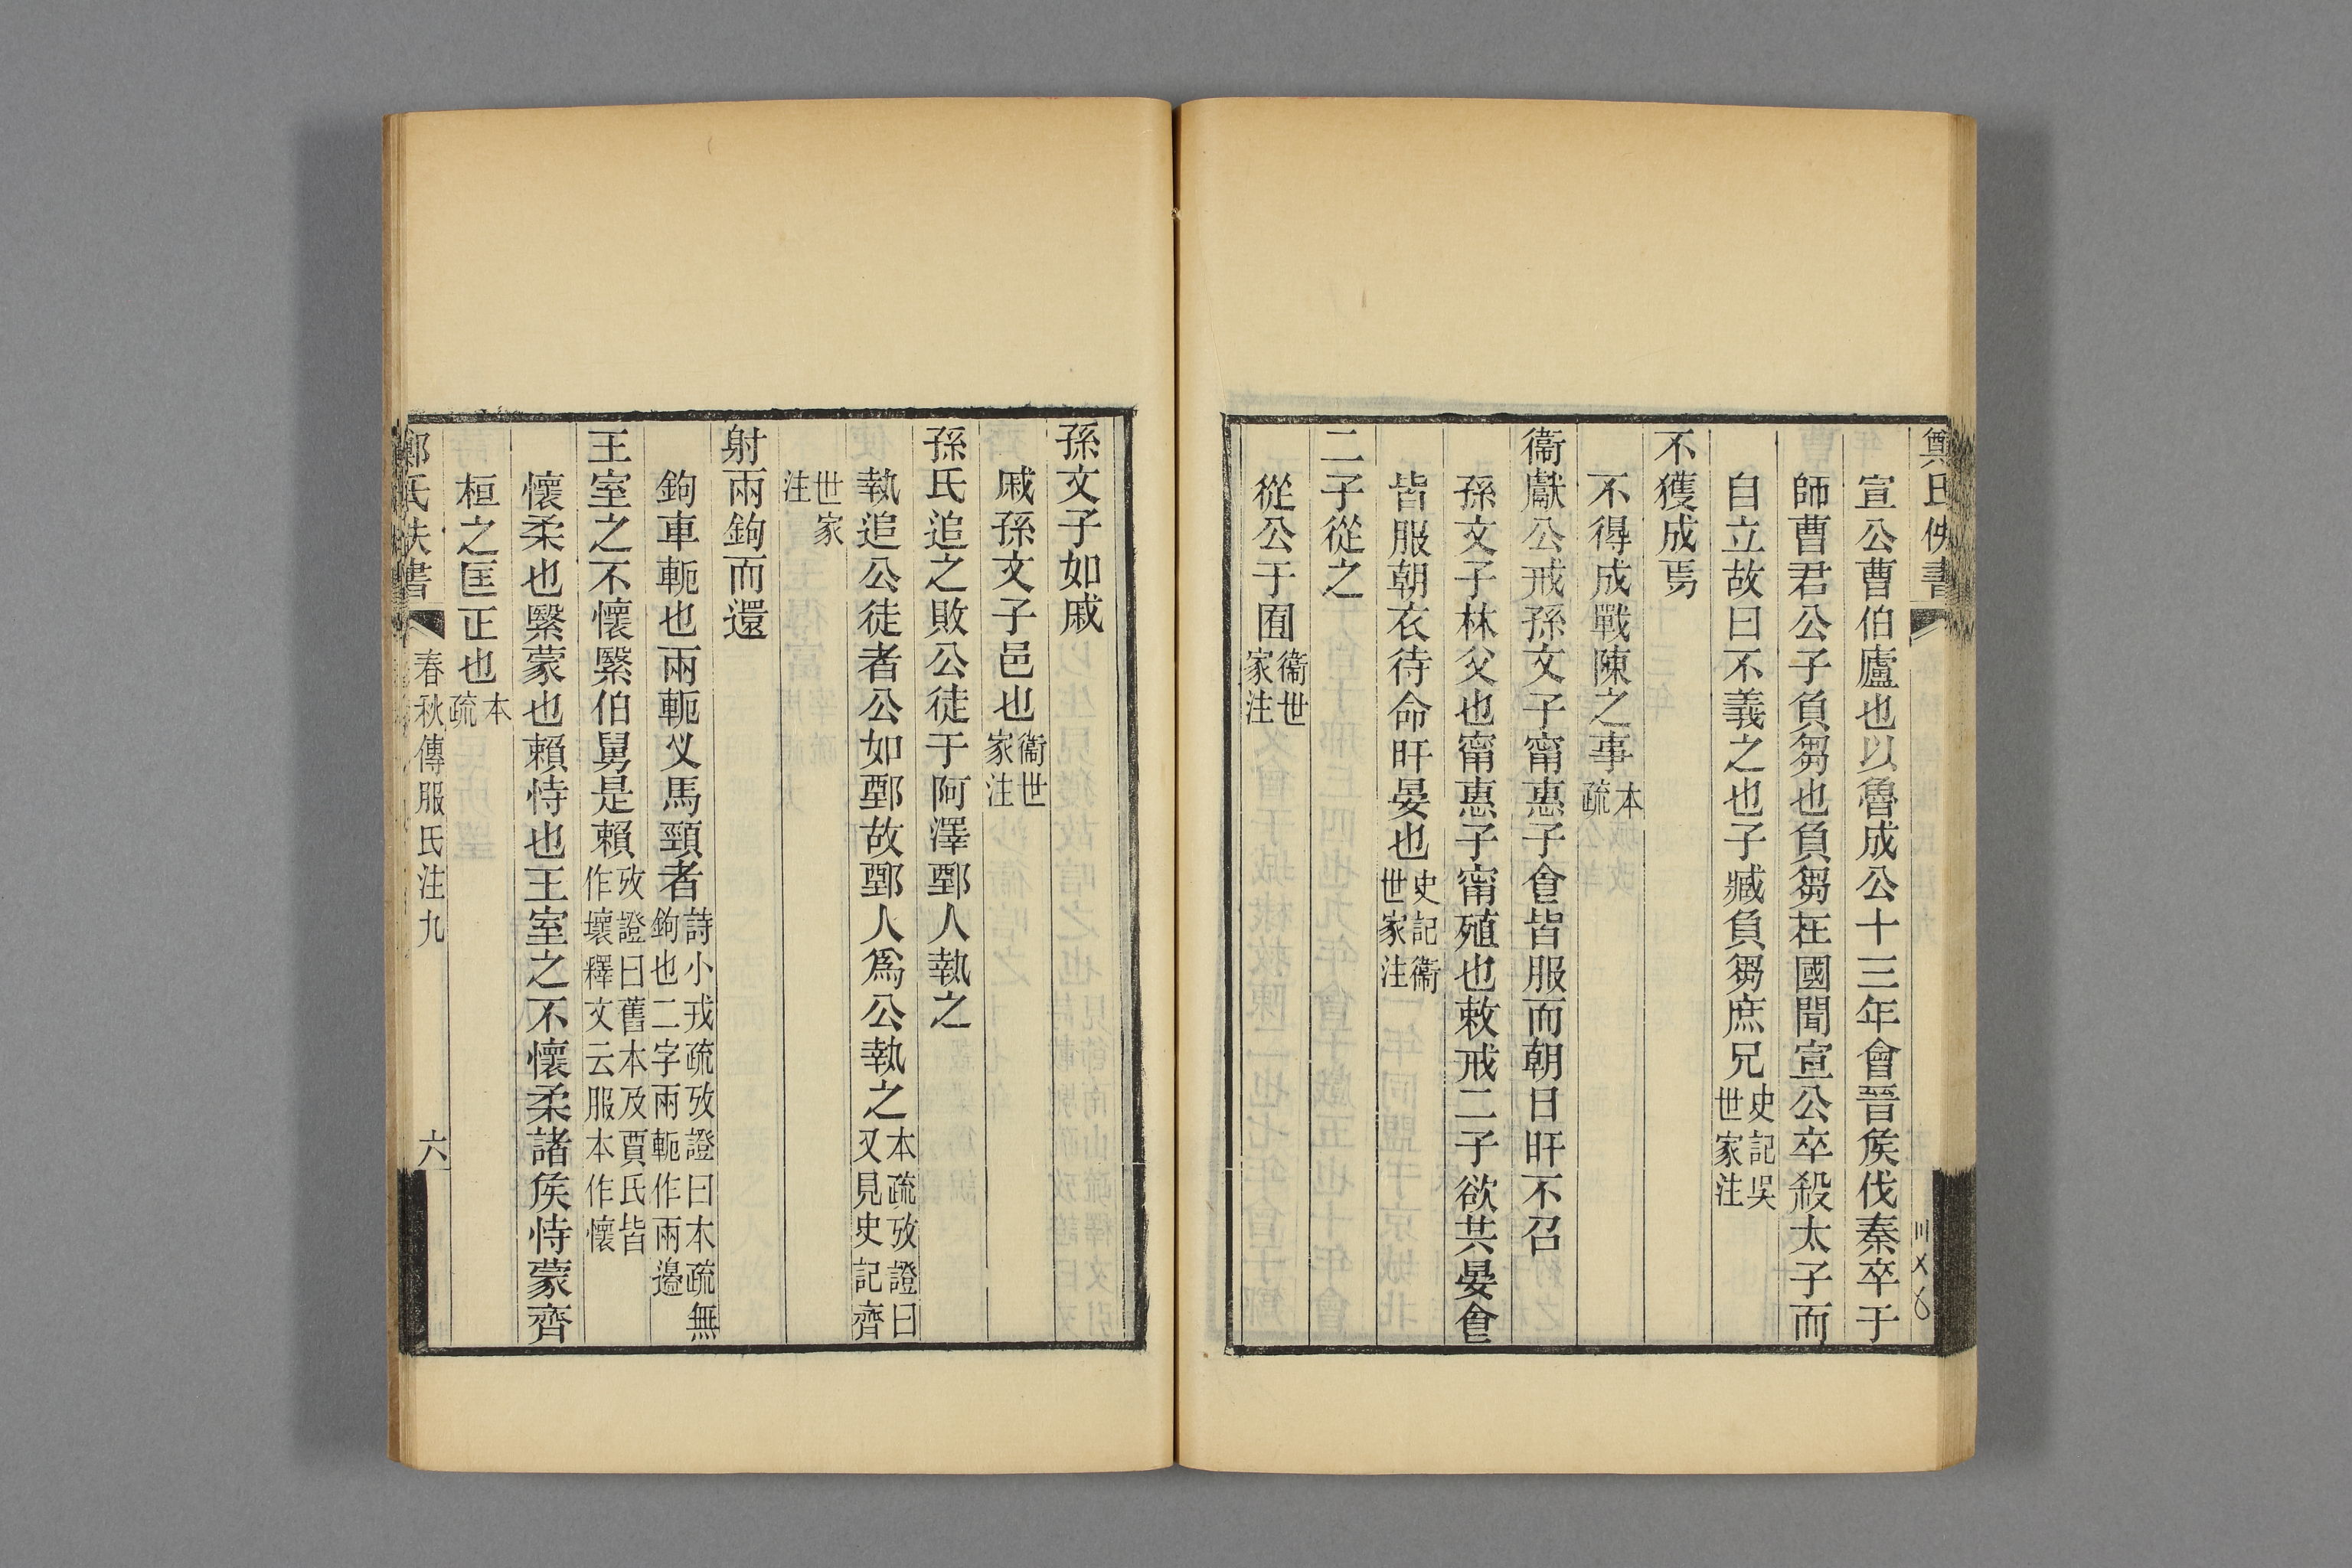 鄭氏佚書
宣公曹伯廬也以魯成公十三年會晉矦伐秦卒于
師曹君公子負芻也負芻在國聞宣公卒殺太子而
自立故曰不義之也子臧負芻庶兄史記吳世家注
不獲成焉
不得成戰陳之事本疏
衞獻公戒孫文子甯惠子㑹皆服而朝日旰不召
孫文子林父也甯惠子甯殖也敕戒二子欲共晏㑹
皆服朝衣待命旰晏也史記衞世家注
二子從之
從公于囿衞世家注
孫文子如戚
戚孫文子邑也衞世家注
孫氏追之敗公徒于阿澤鄄人執之
執追公徒者公如鄄故鄄人爲公執之本疏攷證曰又見史記齊
世家注
射兩鉤而還
鉤車軛也兩軛叉馬頸者詩小戎疏攷證曰本疏無鉤也二字兩軛作兩邊
王室之不懷繄伯舅是賴攷證曰舊本及賈氏皆作壞釋文云服本作懷
懷柔也繄蒙也賴恃也王室之不懷柔諸矦恃蒙齊
桓之匡正也本疏
鄭氏佚書 春秋傳服氏注九 六